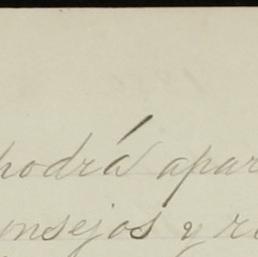 podrá apar
onsejos y re